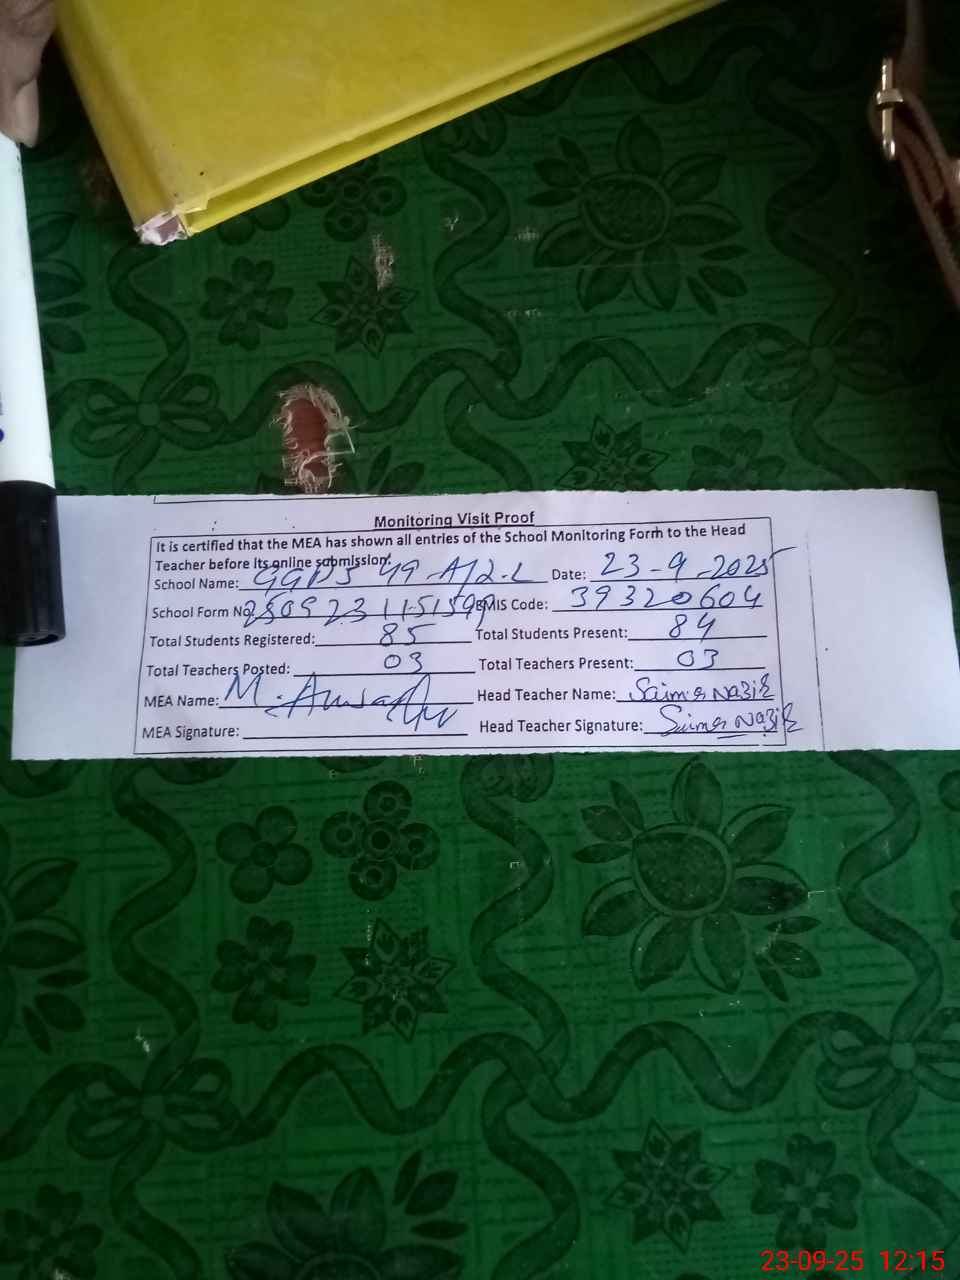 Monitoring Visit Proof
It is certified that the MEA has shown all entries of the School Monitoring Form to the Head
Teacher before its online submission.
School Name: GGPS 49-A/2-L Date: 23-9-2025
School Form No EMIS Code: 39320604
Total Students Registered: 85 Total Students Present: 84
Total Teachers Posted: 03 Total Teachers Present: 03
MEA Name: M. Head Teacher Name: Saima Nazir
MEA Signature: Head Teacher Signature: Saima Nazir
23-09-25 12:15